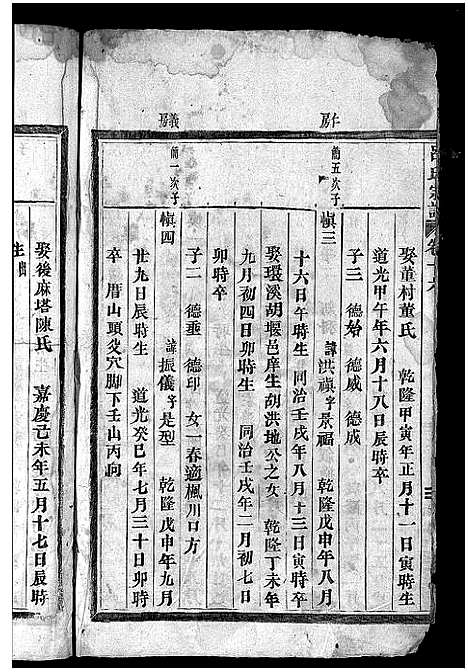 呂氏宗譜
娶董村董氏　乾隆甲寅年正月十一日寅時生
道光甲午年六月十八日辰時卒
子三　德始　德威　德成
仁房
前五次子
慎三　諱洪禎字景福　乾隆戊申年八月
十六日午時生　同治壬戌年八月十三日寅時卒
娶環溪胡堰邑庠生胡洪地公之女　乾隆丁未年
九月初四日卯時生　同治壬戌年二月初七日
卯時卒
子二　德垂　德印　女一春適楓川口方
義房
前一次子
慎四　諱振儀字是型　乾隆戊申年九月
廿九日辰時生　道光癸巳年七月三十日卯時
卒　厝山頭交穴脚下壬山丙向
娶後麻塔陳氏　嘉慶己未年五月十七日辰時
生